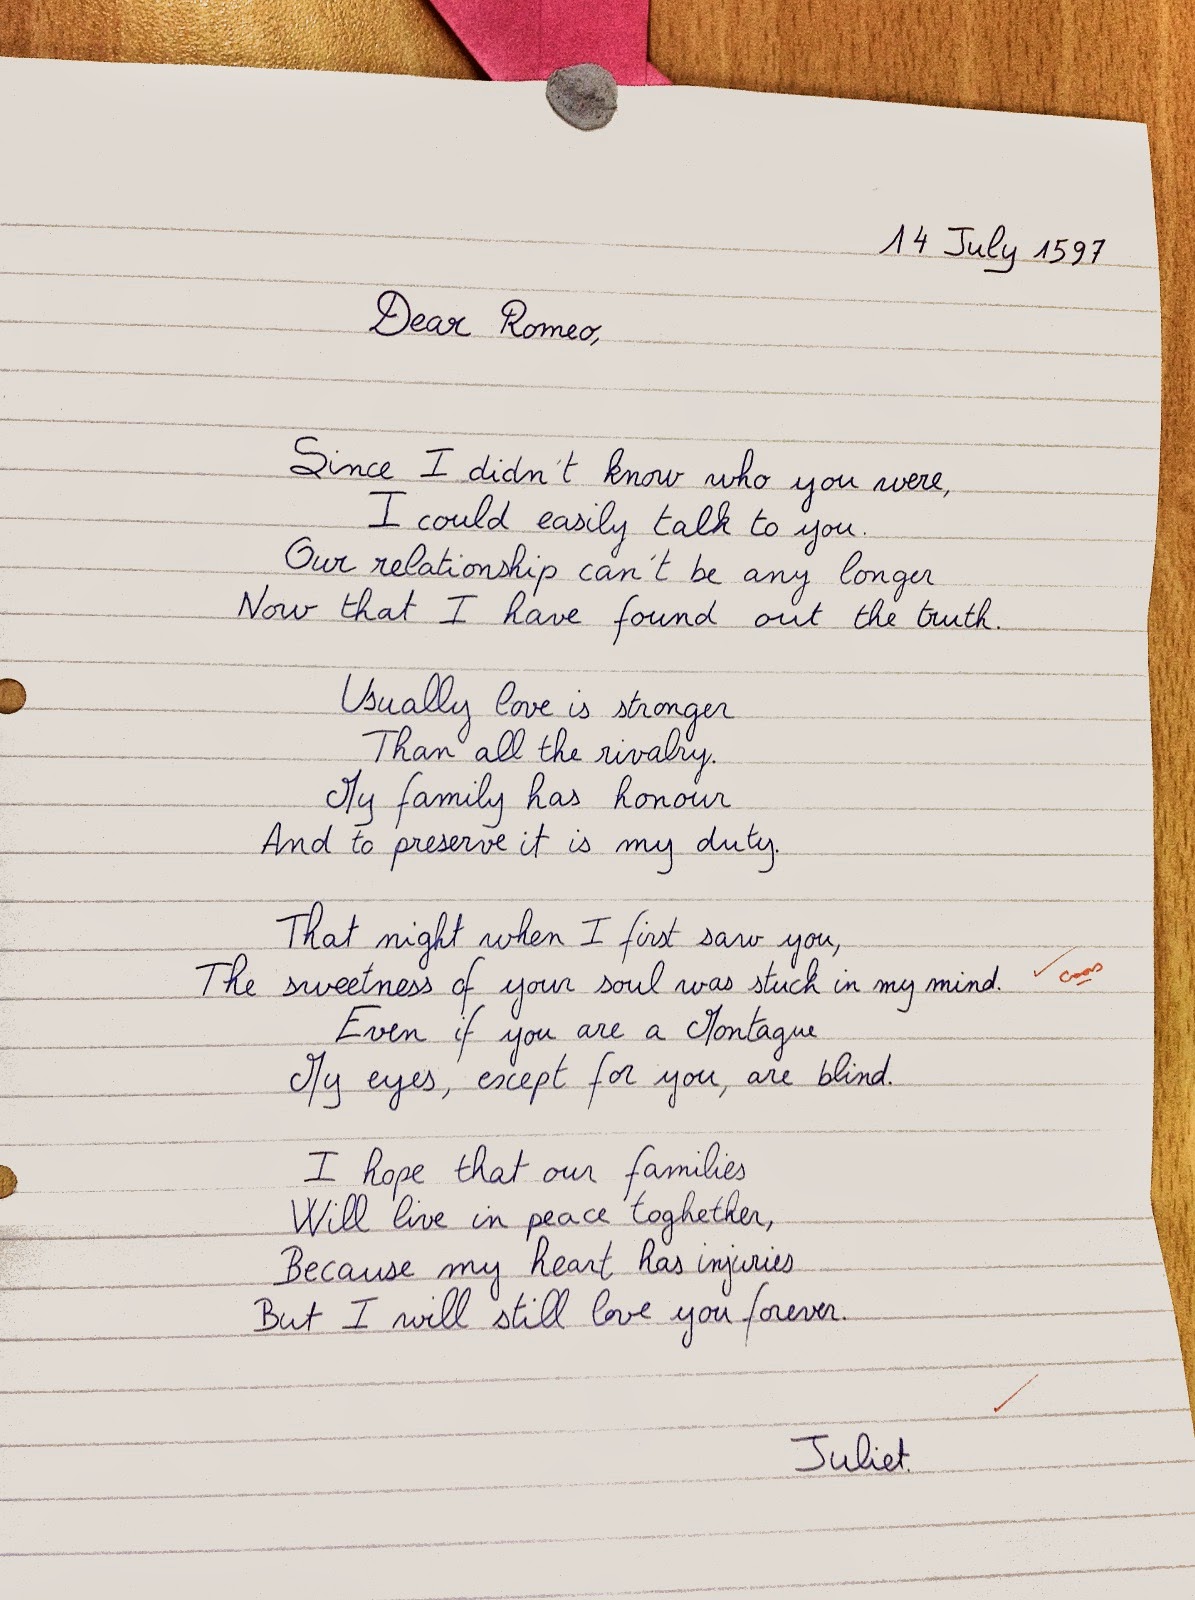 14 July 1597
Dear Romeo,
Since I didn't know who you were,
I could easily talk to you.
Our relationship can't be any longer
Now that I have found out the truth.
Usually love is stronger
Than all the rivalry.
My family has honour
And to preserve it is my duty.
That night when I first saw you,
The sweetness of your soul was stuck in my mind.
Even if you are a Montague
My eyes, except for you, are blind.
I hope that our families
Will live in peace toghether,
Because my heart has injuries
But I will still love you forever.
Juliet.